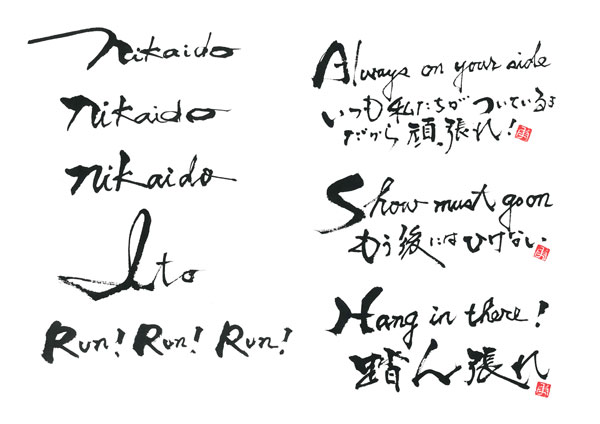 Nikaido
Nikaido
Nikaido
Ito
Run! Run! Run!
Always on your side
いつも私たちがついているよ
だから頑張れ!
Show must go on
もう後にはひけない
Hang in there!
踏ん張れ